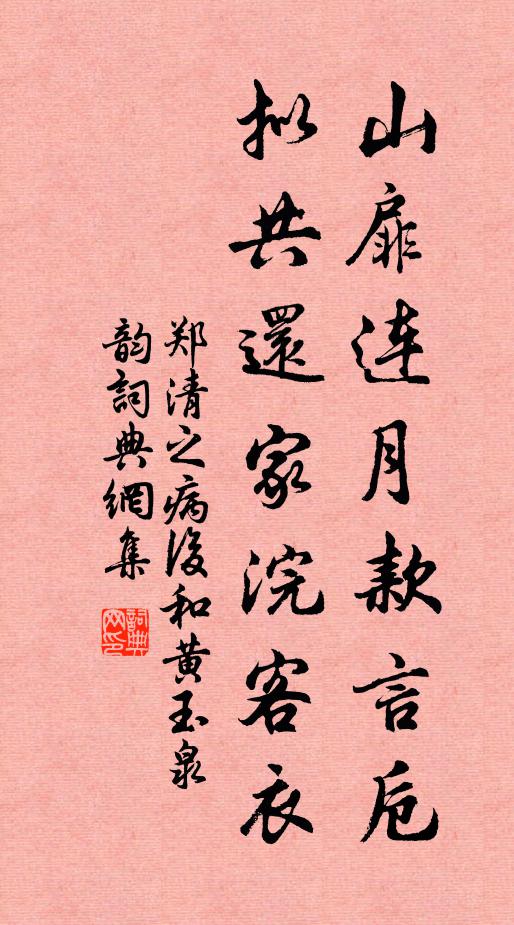 山扉连月款言卮
拟共還家浣客衣
郑清之病後和黄玉泉
韵詞典網集
詞典网印